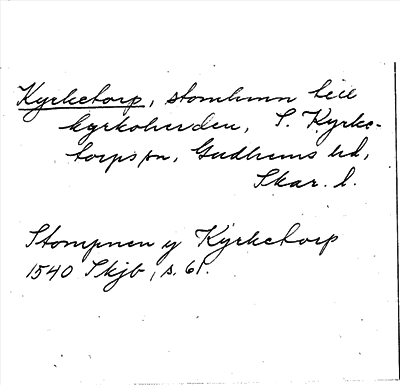 Kyrketorp, stomhemn till
kyrkoherden, S. Kyrke-
torps sn, Gudhems hd,
Skar. l.
Stompnen y Kyrketorp
1540 Skjb, s. 61.